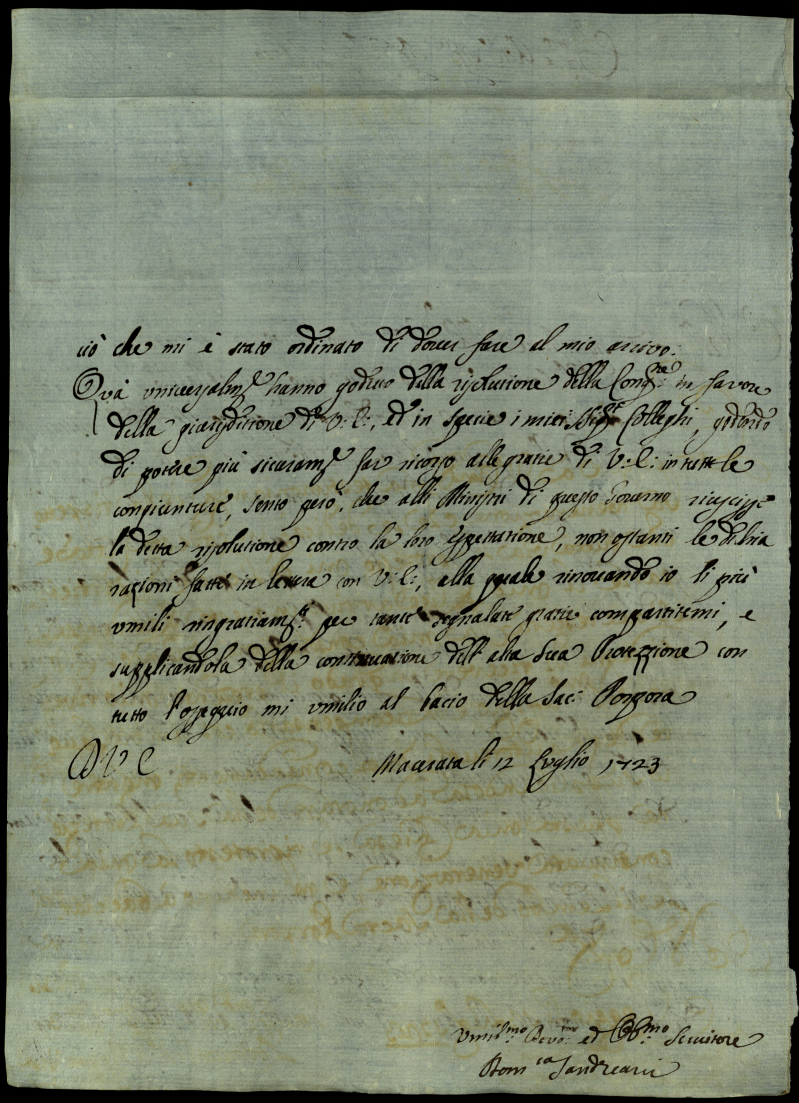 ciò che mi è stato ordinato di dover fare al mio arrivo.
Quà universalm.e hanno goduto della risolutione della Cong.ne in favore
della giurisditione di V: E:, ed in specie i miei Sig.ri Colleghi, godendo
di potere più sicuram.e far ricorso alle gratie di V: E: in tutte le
congiunture, sento però, che alli Ministri di questo Governo riescisse
la detta risolutione contro la loro espettatione, non ostanti le dichia
razioni fatte in lettera con V: E:, alla quale rinovando io li più
umili ringratiam.ti per tante segnalate gratie compartitemi, e
supplicandola della continuatione dell'alta Sua Protezzione con
tutto l'ossequio mi umilio al bacio della Sac: Porpora
D V E Macerata li 12 Luglio 1723
Umil.mo Devo.mo ed Obb.mo Servitore